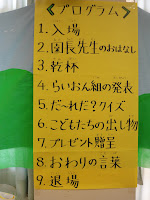 《プログラム》
1.入場
2.園長先生のおはなし
3.乾杯
4.らいおん組の発表
5.だ〜れだ?クイズ
6.こどもたちの出し物
7.プレゼント贈呈
8.おわりの言葉
9.退場